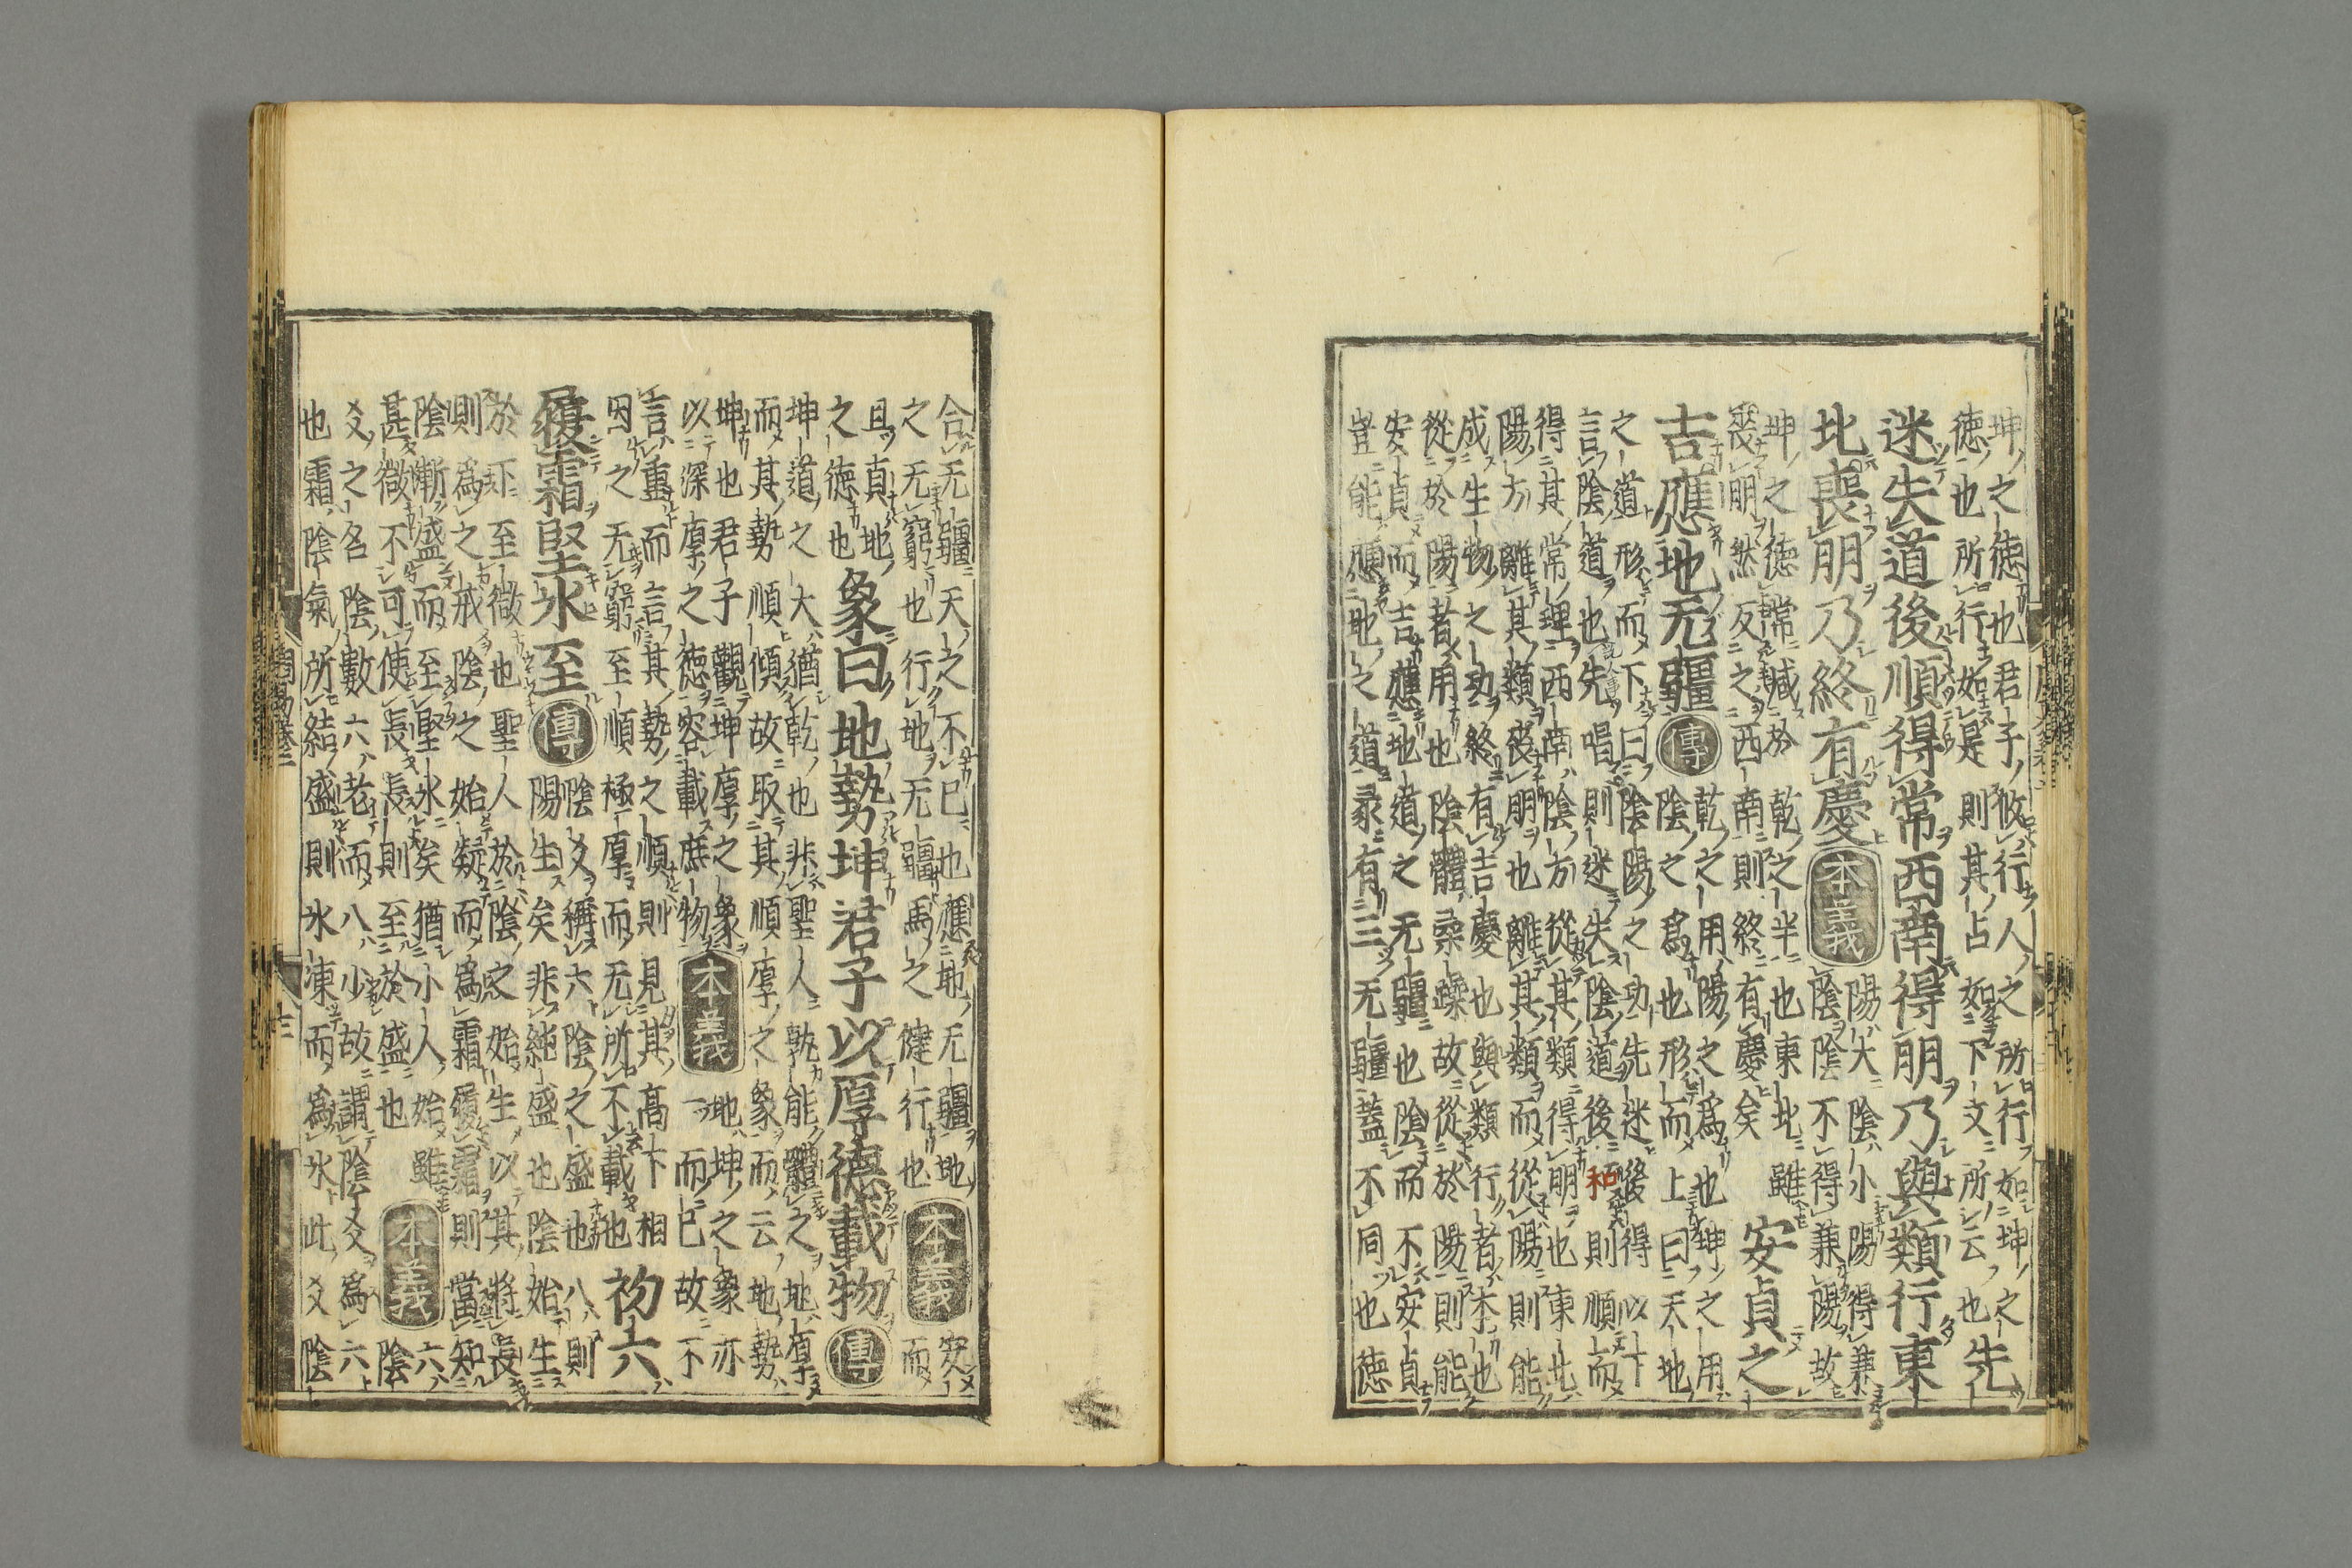 坤之德也君子攸行人之所行如坤之
德也所行如是則其占如下文所云也
先
迷失道後順得常西南得朋乃與類行東
北喪朋乃終有慶 本義
陽大陰小陽得兼
陰陰不得兼陽故
坤之德常減於乾之半也東北雖
喪朋然反之西南則終有慶矣
安貞之
吉應地无疆 傳
乾之用陽之爲也坤之用
陰之爲也形而上曰天地
之道形而下曰陰陽之功先迷後得以下
言陰道也先唱則迷失陰道後和則順而
得其常理西南陰方從其類得朋也東北
陽方離其類喪朋也離其類而從陽則能
成生物之功終有吉慶也與類行者本也
從於陽者用也陰體柔躁故從於陽則能
安貞而吉應地道之无疆也陰而不安貞
豈能應地之道彖有三无疆蓋不同也德
合无疆天之不已也應地无疆地
之无窮也行地无疆馬之健行也
本義
安
而
且貞地
之德也
象曰地勢坤君子以厚德載物 傳
坤道之大猶乾也非聖人孰能體之地厚
而其勢順傾故取其順厚之象而云地勢
坤也君子觀坤厚之象
以深厚之德容載庶物
本義
地坤之象亦
一而已故不
言重而言其勢之順則見其高下相
因之无窮至順極厚而无所不載也
初六
履霜堅氷至 傳
陰爻稱六陰之盛也八則
陽生矣非純盛也陰始生
於下至微也聖人於陰之始生以其將長
則爲之戒陰之始凝而爲霜履霜則當知
陰漸盛而至堅氷矣猶小人始雖
甚微不可使長長則至於盛也
本義
六
陰
爻之名陰數六老而八少故謂陰爻爲六
也霜陰氣所結盛則氷凍而爲氷此爻陰